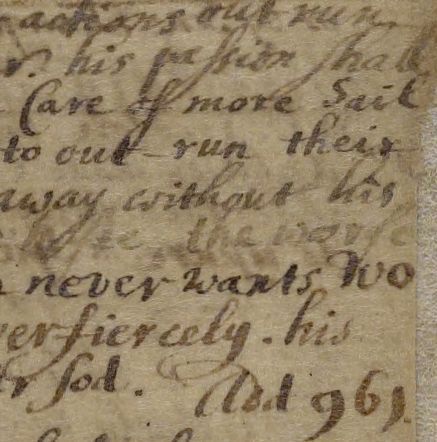 actions out run
his passion shall
Care of more Sail
to out-run their
away without his
the worse
never wants Wo
fiercely. his
sod. Add 961